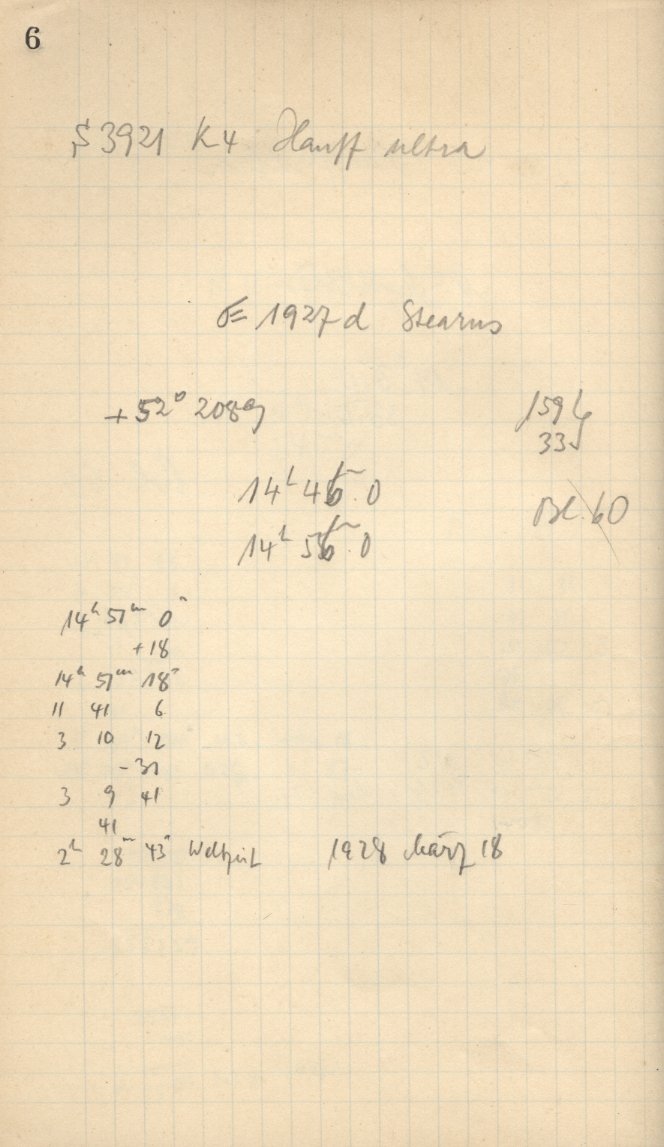 6
S 3921 K4 Hauff ultra
1927 d Stearns
+52° 2089 1594
335
14ʰ 46ᵐ 0
Bl. 60
14ʰ 56ᵐ 0
14ʰ 51ᵐ 0ˢ
+18
14ʰ 51ᵐ 18ˢ
11 41 6
3 10 12
-31
3 9 41
41
2ʰ 28ᵐ 43ˢ Weltzeit 1928 März 18